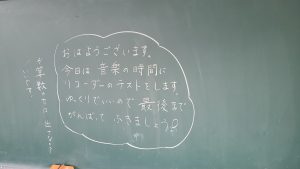 おはようございます。
今日は音楽の時間に
リコーダーのテストをします。
ゆっくりでいいので最後まで
がんばってふきましょう♪